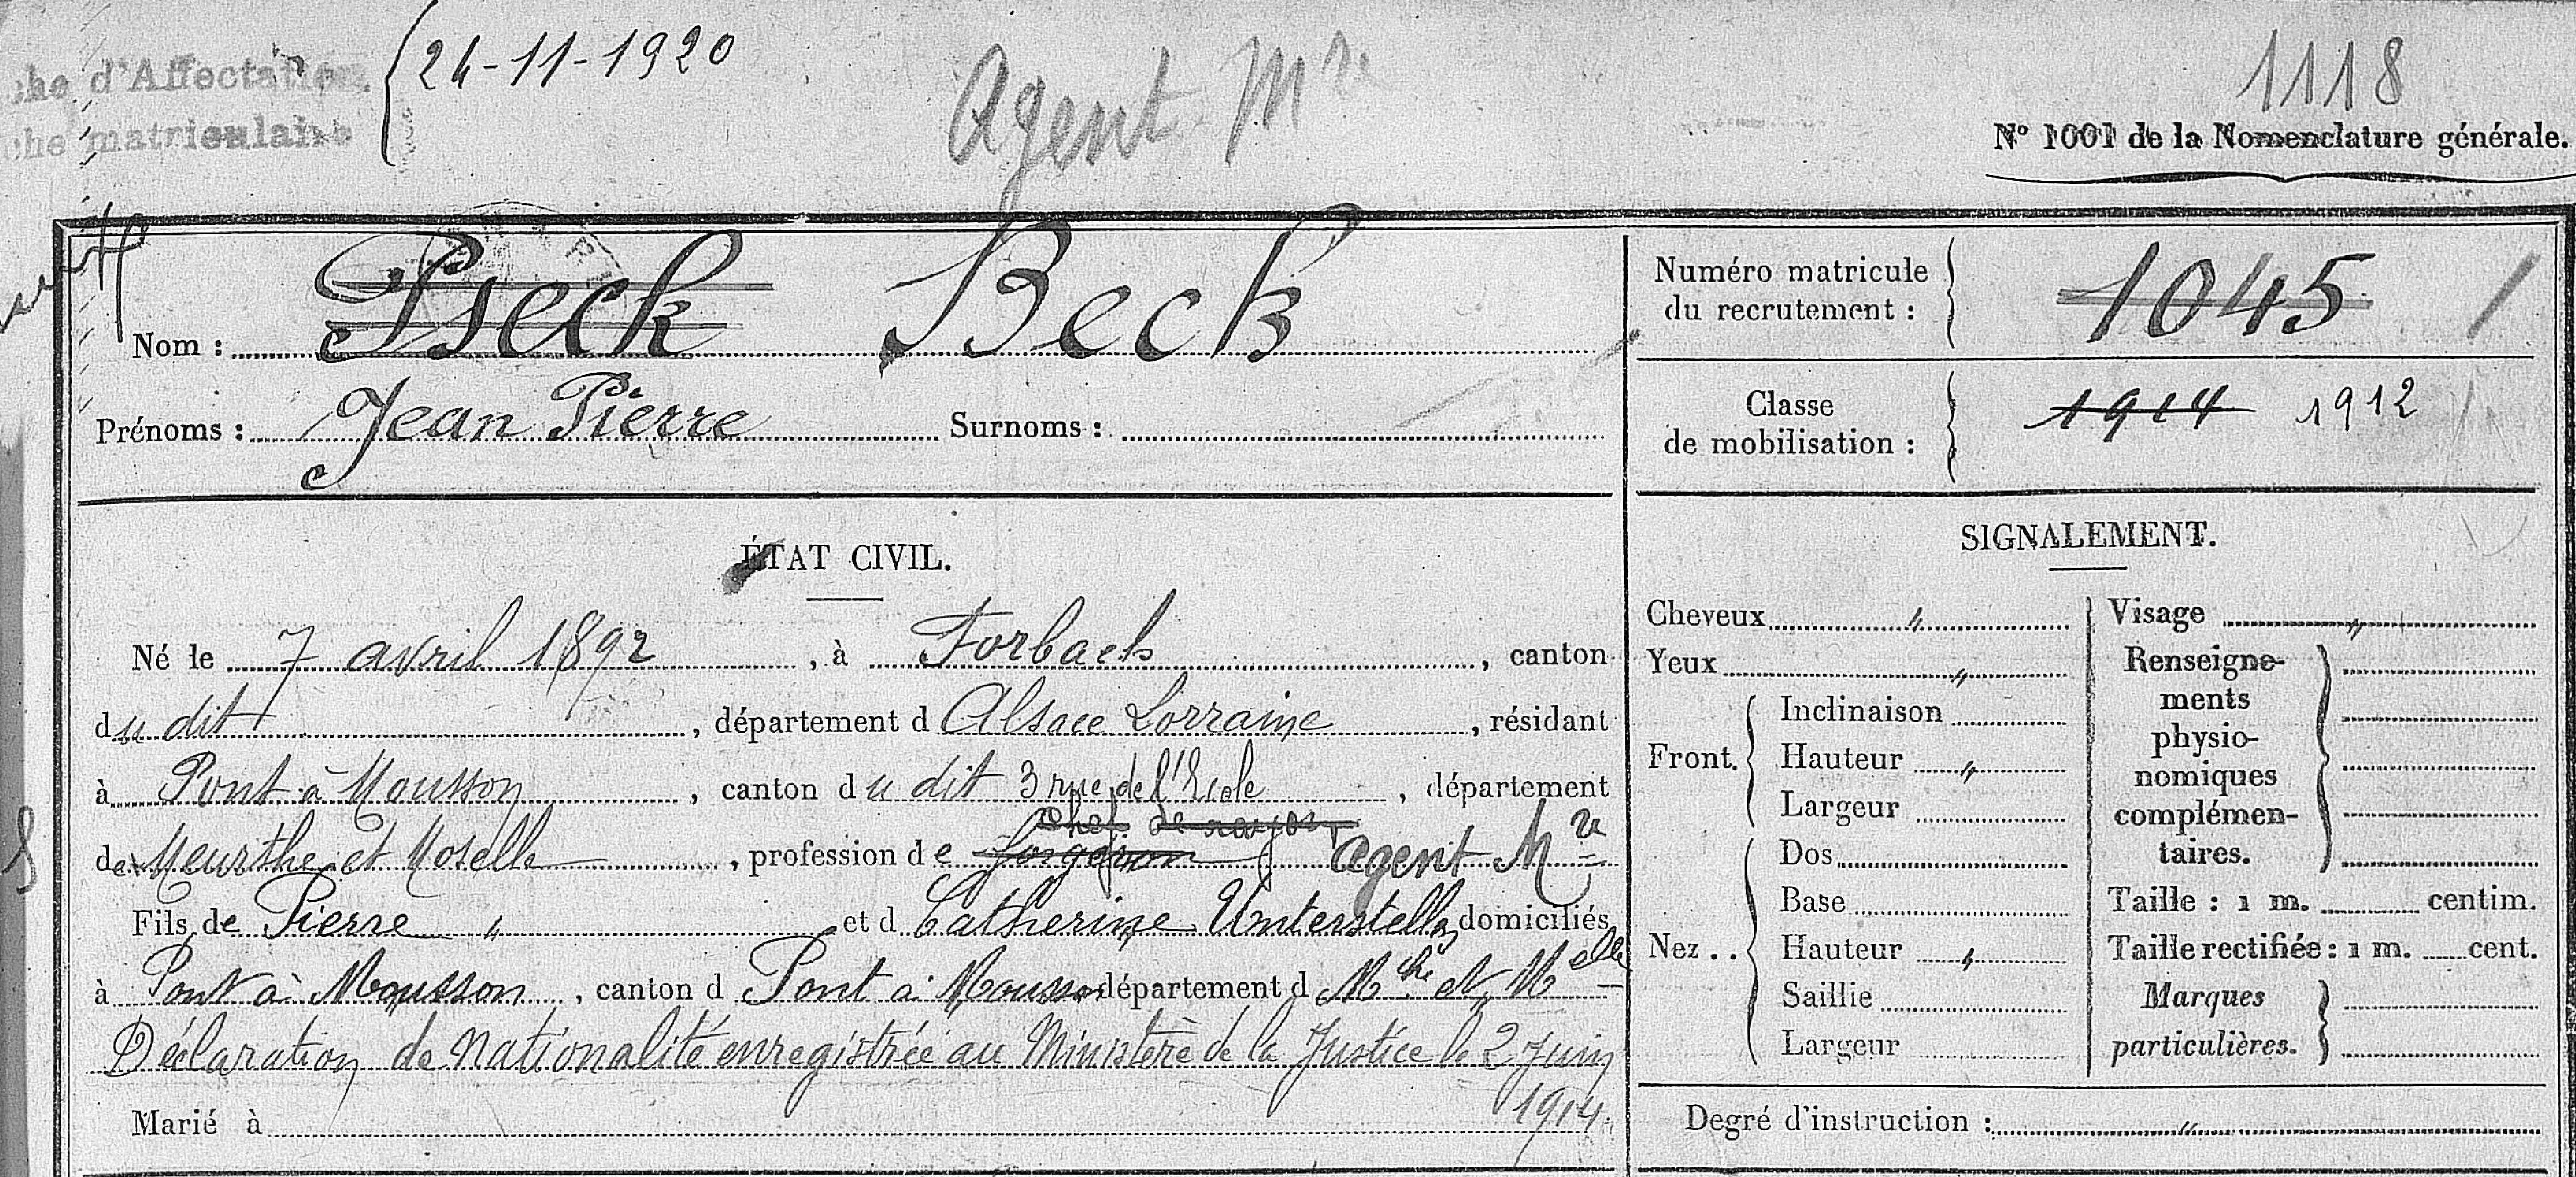 che d'Affectation
che matriculaire
24-11-1920
Agent Mre
1118
N° 1001 de la Nomenclature générale.
Nom : Pseck Beck
Prénoms : Jean Pierre Surnoms :
Numéro matricule du recrutement : 1045
Classe de mobilisation : 1914 1912
ÉTAT CIVIL.
Né le 7 avril 1892, à Forbach, canton
du dit, département d Alsace Lorraine, résidant
à Pont à Mousson, canton du dit 3 rue de l'Ecole, département
Chef de rayon
de Meurthe et Moselle, profession de forgeron agent Mre
Fils de Pierre " et d Catherine Unterstelle domiciliés
à Pont à Mousson, canton d Pont à Mousson département d Mthe et Melle
Déclaration de Nationalité enregistrée au Ministère de la Justice le 2 Juin
1914.
Marié à
SIGNALEMENT.
Cheveux "
Yeux "
Front. Inclinaison
Hauteur "
Largeur
Nez .. Dos
Base
Hauteur "
Saillie
Largeur
Visage "
Renseigne-
ments
physio-
nomiques
complémen-
taires.
Taille : 1 m. centim.
Taille rectifiée : 1 m. cent.
Marques
particulières.
Degré d'instruction : "